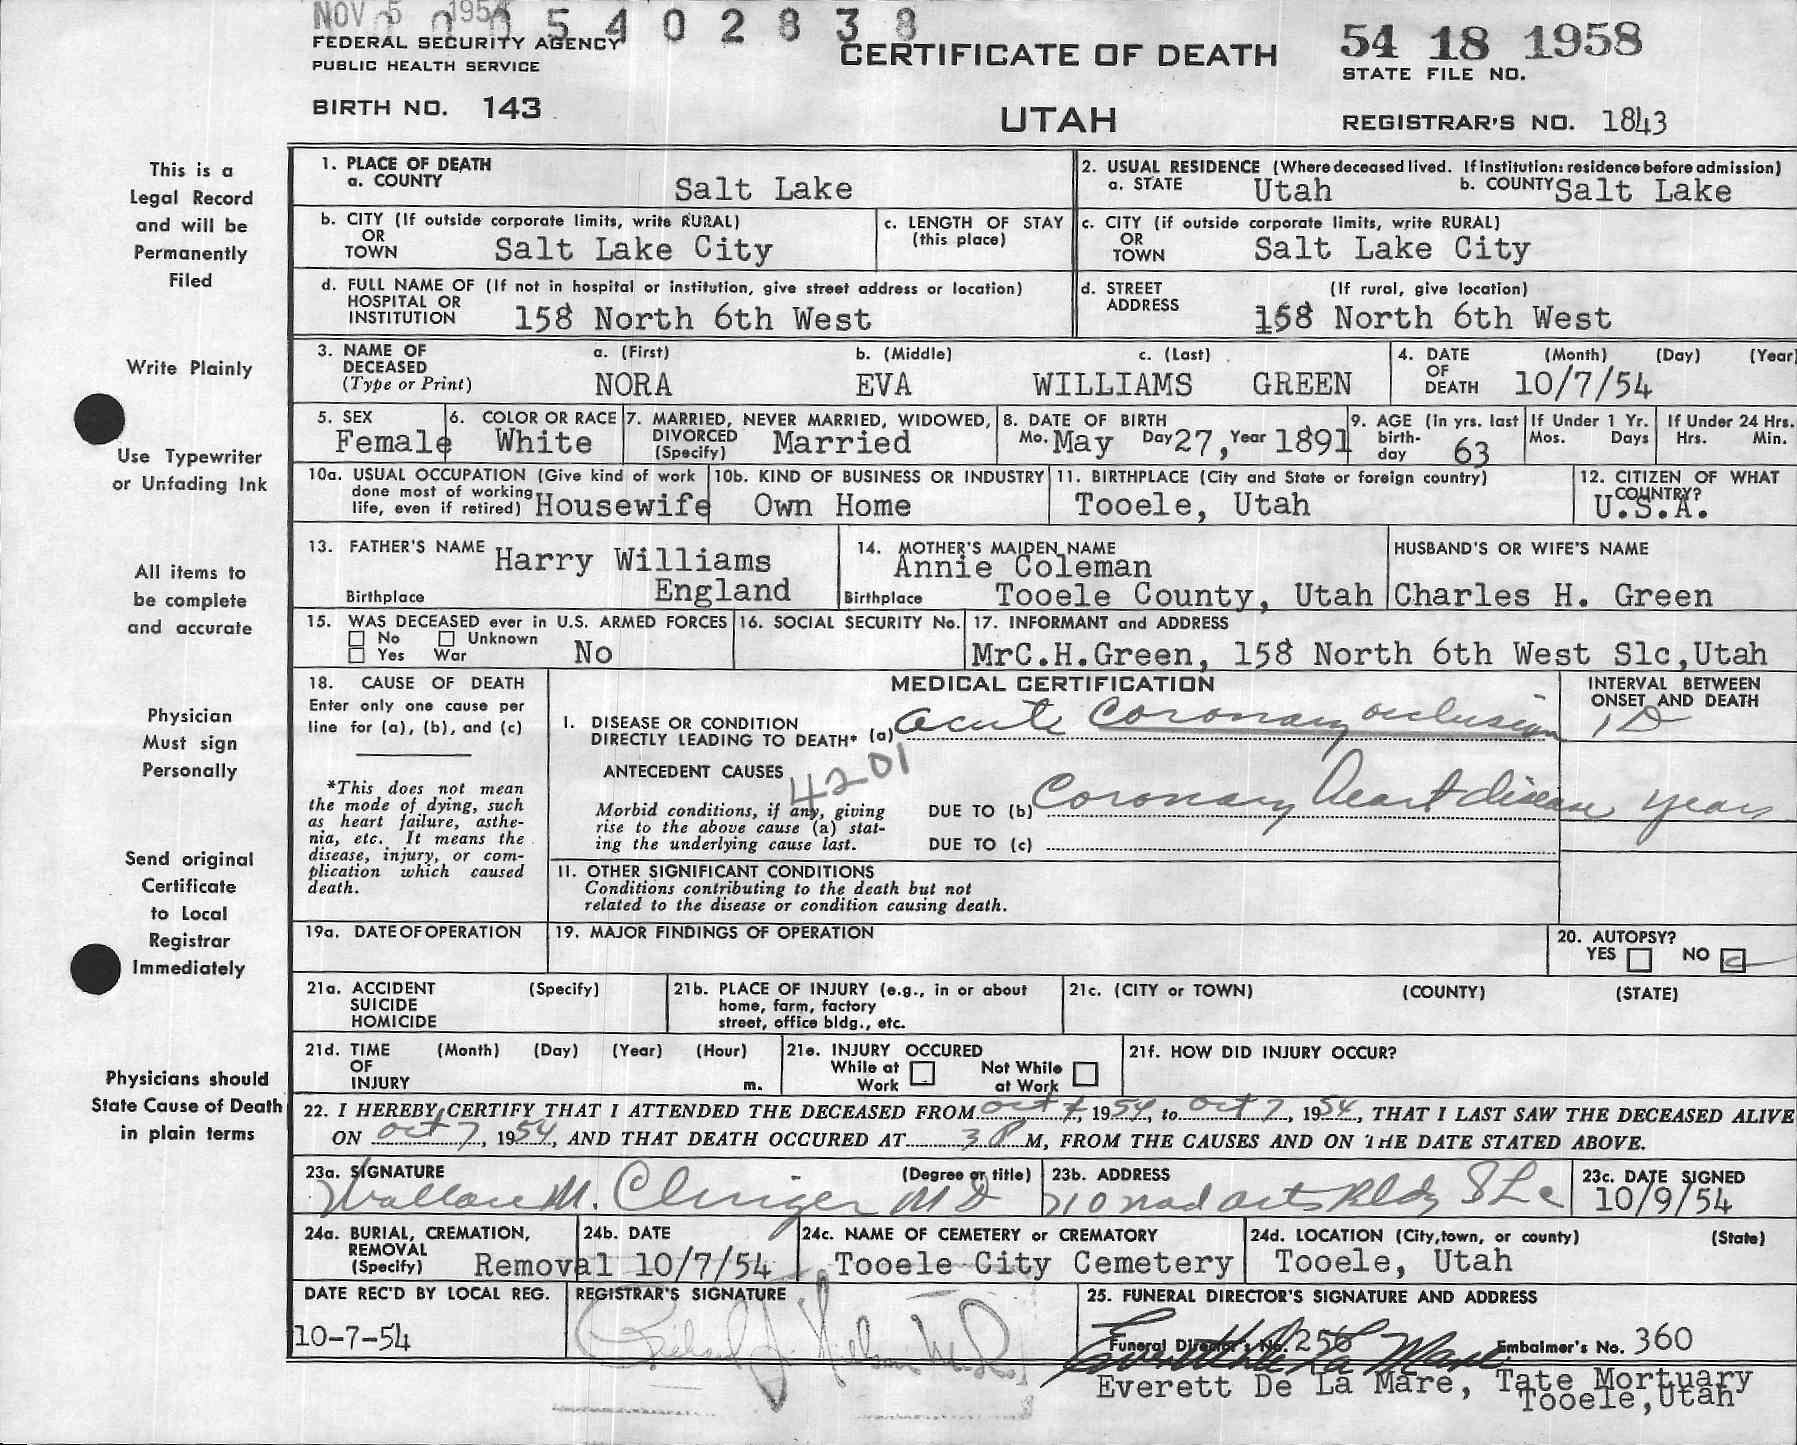 NOV 5 1954
0 0 5 4 0 2 8 3 8
FEDERAL SECURITY AGENCY
PUBLIC HEALTH SERVICE
CERTIFICATE OF DEATH
54 18 1958
STATE FILE NO.
BIRTH NO. 143
UTAH
REGISTRAR'S NO. 1843
This is a
Legal Record
and will be
Permanently
Filed
Write Plainly
Use Typewriter
or Unfading Ink
All items to
be complete
and accurate
Physician
Must sign
Personally
Send original
Certificate
to Local
Registrar
Immediately
Physicians should
State Cause of Death
in plain terms
1. PLACE OF DEATH
a. COUNTY Salt Lake
2. USUAL RESIDENCE (Where deceased lived. If institution: residence before admission)
a. STATE Utah b. COUNTY Salt Lake
b. CITY (If outside corporate limits, write RURAL)
OR
TOWN Salt Lake City
c. LENGTH OF STAY
(this place)
c. CITY (if outside corporate limits, write RURAL)
OR
TOWN Salt Lake City
d. FULL NAME OF (If not in hospital or institution, give street address or location)
HOSPITAL OR
INSTITUTION 158 North 6th West
d. STREET (If rural, give location)
ADDRESS 158 North 6th West
3. NAME OF a. (First) b. (Middle) c. (Last)
DECEASED
(Type or Print) NORA EVA WILLIAMS GREEN
4. DATE (Month) (Day) (Year)
OF
DEATH 10/7/54
5. SEX
Female
6. COLOR OR RACE
White
7. MARRIED, NEVER MARRIED, WIDOWED,
DIVORCED
(Specify) Married
8. DATE OF BIRTH
Mo. May Day 27, Year 1891
9. AGE (in yrs. last
birth-
day 63
If Under 1 Yr.
Mos. Days
If Under 24 Hrs.
Hrs. Min.
10a. USUAL OCCUPATION (Give kind of work
done most of working
life, even if retired) Housewife
10b. KIND OF BUSINESS OR INDUSTRY
Own Home
11. BIRTHPLACE (City and State or foreign country)
Tooele, Utah
12. CITIZEN OF WHAT
COUNTRY?
U.S.A.
13. FATHER'S NAME Harry Williams
Birthplace England
14. MOTHER'S MAIDEN NAME
Annie Coleman
Birthplace Tooele County, Utah
HUSBAND'S OR WIFE'S NAME
Charles H. Green
15. WAS DECEASED ever in U.S. ARMED FORCES
☐ No ☐ Unknown
☐ Yes War No
16. SOCIAL SECURITY No.
17. INFORMANT and ADDRESS
MrC.H.Green, 158 North 6th West Slc,Utah
18. CAUSE OF DEATH
Enter only one cause per
line for (a), (b), and (c)
*This does not mean
the mode of dying, such
as heart failure, asthe-
nia, etc. It means the
disease, injury, or com-
plication which caused
death.
MEDICAL CERTIFICATION
INTERVAL BETWEEN
ONSET AND DEATH
I. DISEASE OR CONDITION
DIRECTLY LEADING TO DEATH* (a) acute coronary occlusion 1 D
ANTECEDENT CAUSES 4201
Morbid conditions, if any, giving
rise to the above cause (a) stat-
ing the underlying cause last.
DUE TO (b) Coronary heart disease years
DUE TO (c)
11. OTHER SIGNIFICANT CONDITIONS
Conditions contributing to the death but not
related to the disease or condition causing death.
19a. DATE OF OPERATION
19. MAJOR FINDINGS OF OPERATION
20. AUTOPSY?
YES ☐ NO ☑
21a. ACCIDENT (Specify)
SUICIDE
HOMICIDE
21b. PLACE OF INJURY (e.g., in or about
home, farm, factory
street, office bldg., etc.
21c. (CITY or TOWN) (COUNTY) (STATE)
21d. TIME (Month) (Day) (Year) (Hour)
OF
INJURY m.
21e. INJURY OCCURED
While at Work ☐ Not While at Work ☐
21f. HOW DID INJURY OCCUR?
22. I HEREBY CERTIFY THAT I ATTENDED THE DECEASED FROM Oct 7, 1954, to Oct 7, 1954, THAT I LAST SAW THE DECEASED ALIVE
ON Oct 7, 1954, AND THAT DEATH OCCURED AT 3 P M, FROM THE CAUSES AND ON THE DATE STATED ABOVE.
23a. SIGNATURE (Degree or title)
Wallace M. Clinger MD
23b. ADDRESS
710 Med Arts Bldg SLC
23c. DATE SIGNED
10/9/54
24a. BURIAL, CREMATION,
REMOVAL
(Specify) Removal
24b. DATE
10/7/54
24c. NAME OF CEMETERY or CREMATORY
Tooele City Cemetery
24d. LOCATION (City,town, or county) (State)
Tooele, Utah
DATE REC'D BY LOCAL REG.
10-7-54
REGISTRAR'S SIGNATURE
25. FUNERAL DIRECTOR'S SIGNATURE AND ADDRESS
Funeral Director's No. 256 Embalmer's No. 360
Everett De La Mare
Everett De La Mare, Tate Mortuary
Tooele,Utah